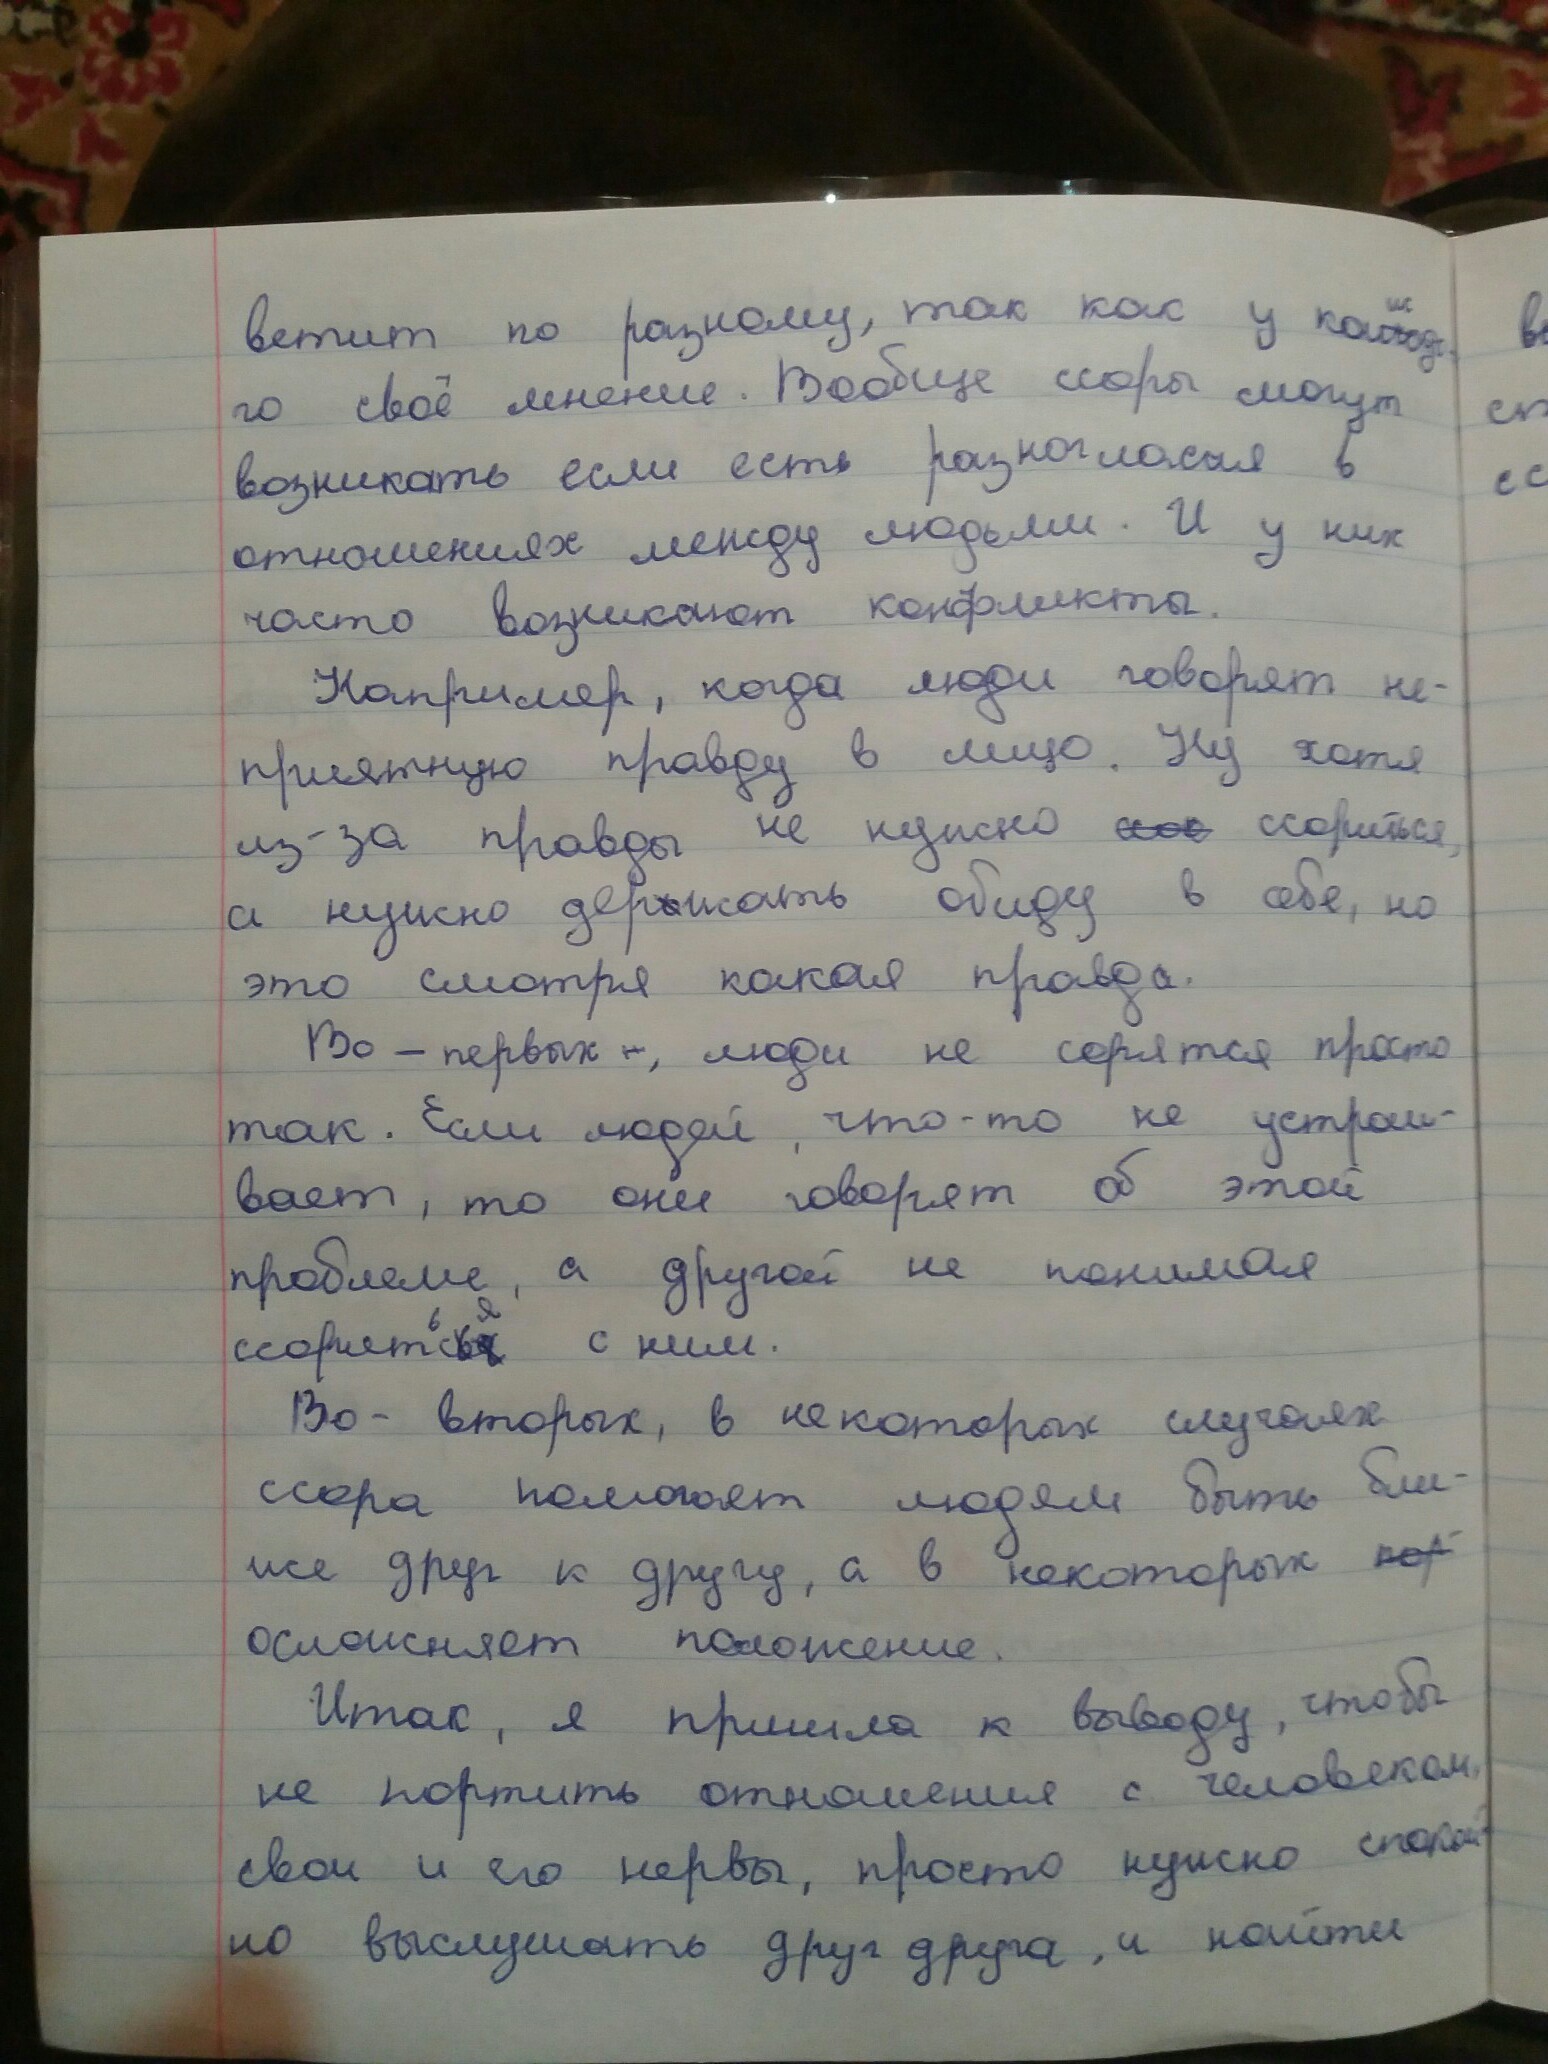 ветит по разному, так как у каждо-
го своё мнение. Вообще ссоры могут
возникать если есть разногласия в
отношениях между людьми. И у них
часто возникают конфликты.
Например, когда люди говорят не-
приятную правду в лицо. Ну хотя
из-за правды не нужно ссориться,
а нужно держать обиду в себе, но
это смотря какая правда.
Во-первых, люди не сорятся просто
так. Если людей, что-то не устраи-
вает, то они говорят об этой
проблеме, а другой не понимая
ссоряться с ним.
Во-вторых, в некоторых случаях
ссора помогает людям быть бли-
же друг к другу, а в некоторых
осложняет положение.
Итак, я пришла к выводу, чтобы
не портить отношения с человеком,
свои и его нервы, просто нужно спокой-
но выслушать друг друга, и найти